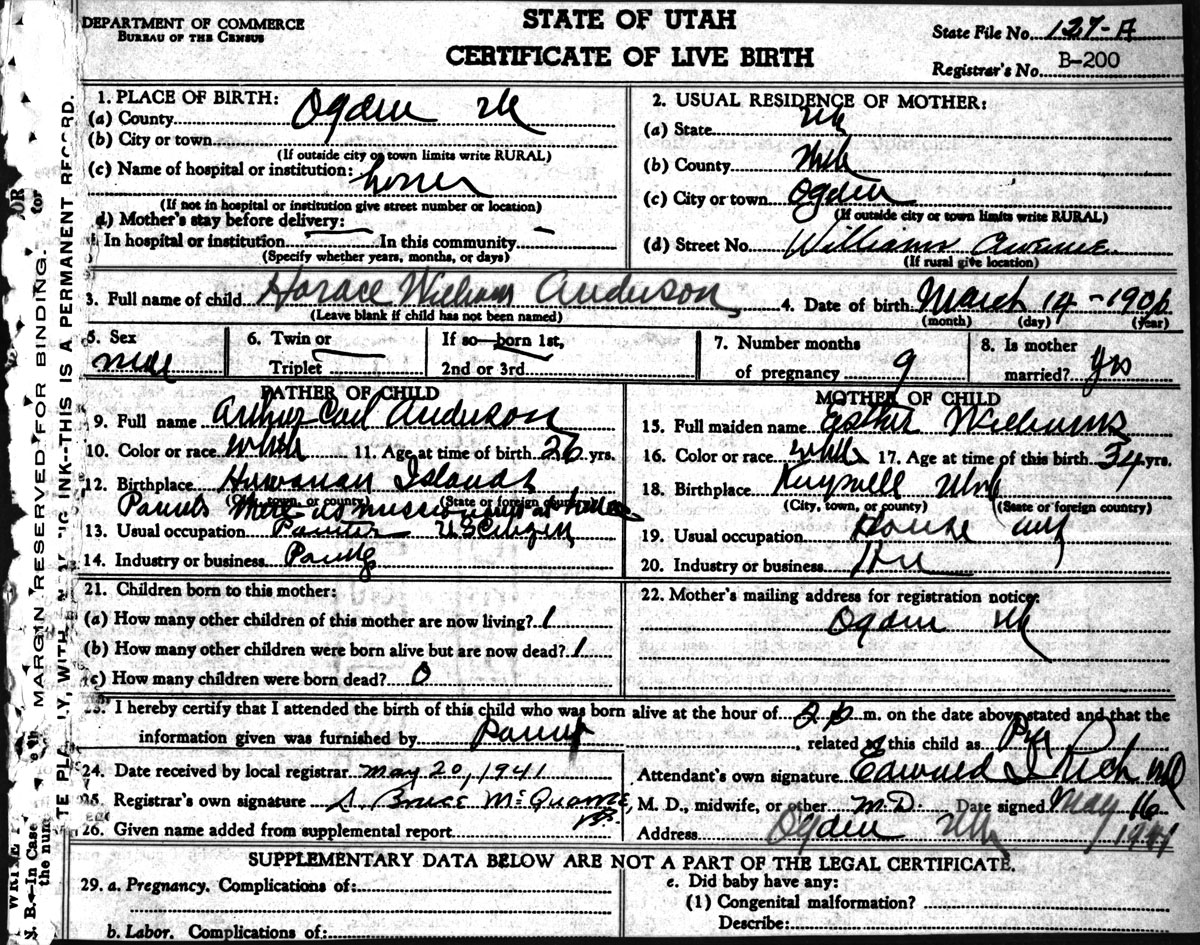 DEPARTMENT OF COMMERCE
BUREAU OF THE CENSUS
STATE OF UTAH
CERTIFICATE OF LIVE BIRTH
State File No. 127-A
Registrar's No. B-200
MARGIN RESERVED FOR BINDING.
INK--THIS IS A PERMANENT RECORD.
1. PLACE OF BIRTH:
(a) County Ogden
(b) City or town
(If outside city or town limits write RURAL)
(c) Name of hospital or institution:
(If not in hospital or institution give street number or location)
d) Mother's stay before delivery:
In hospital or institution In this community
(Specify whether years, months, or days)
2. USUAL RESIDENCE OF MOTHER:
(a) State
(b) County
(c) City or town Ogden
(If outside city or town limits write RURAL)
(d) Street No. Williams Avenue
(If rural give location)
3. Full name of child Horace William Anderson
(Leave blank if child has not been named)
4. Date of birth March 14-
(month) (day) (year)
5. Sex male
6. Twin or
Triplet
If so—born 1st,
2nd or 3rd
7. Number months
of pregnancy 9
8. Is mother
married? yes
FATHER OF CHILD
9. Full name Arthur Carl Anderson
10. Color or race white 11. Age at time of birth 26 yrs.
12. Birthplace Hawaiian Islands
(City, town, or county) (State or foreign country)
13. Usual occupation Painter US Citizen
14. Industry or business
MOTHER OF CHILD
15. Full maiden name Esther Williams
16. Color or race white 17. Age at time of this birth 34 yrs.
18. Birthplace Kaysville Utah
(City, town, or county) (State or foreign country)
19. Usual occupation House
20. Industry or business
21. Children born to this mother:
(a) How many other children of this mother are now living? 1
(b) How many other children were born alive but are now dead? 1
(c) How many children were born dead? 0
22. Mother's mailing address for registration notice:
Ogden
23. I hereby certify that I attended the birth of this child who was born alive at the hour of 2 p m. on the date above stated and that the
information given was furnished by , related to this child as
24. Date received by local registrar May 20, 1941
25. Registrar's own signature S. Bruce
26. Given name added from supplemental report
Attendant's own signature Edward I Rich MD
M. D., midwife, or other M.D. Date signed May 16
Address Ogden 1941
SUPPLEMENTARY DATA BELOW ARE NOT A PART OF THE LEGAL CERTIFICATE.
29. a. Pregnancy. Complications of:
b. Labor. Complications of:
e. Did baby have any:
(1) Congenital malformation?
Describe: